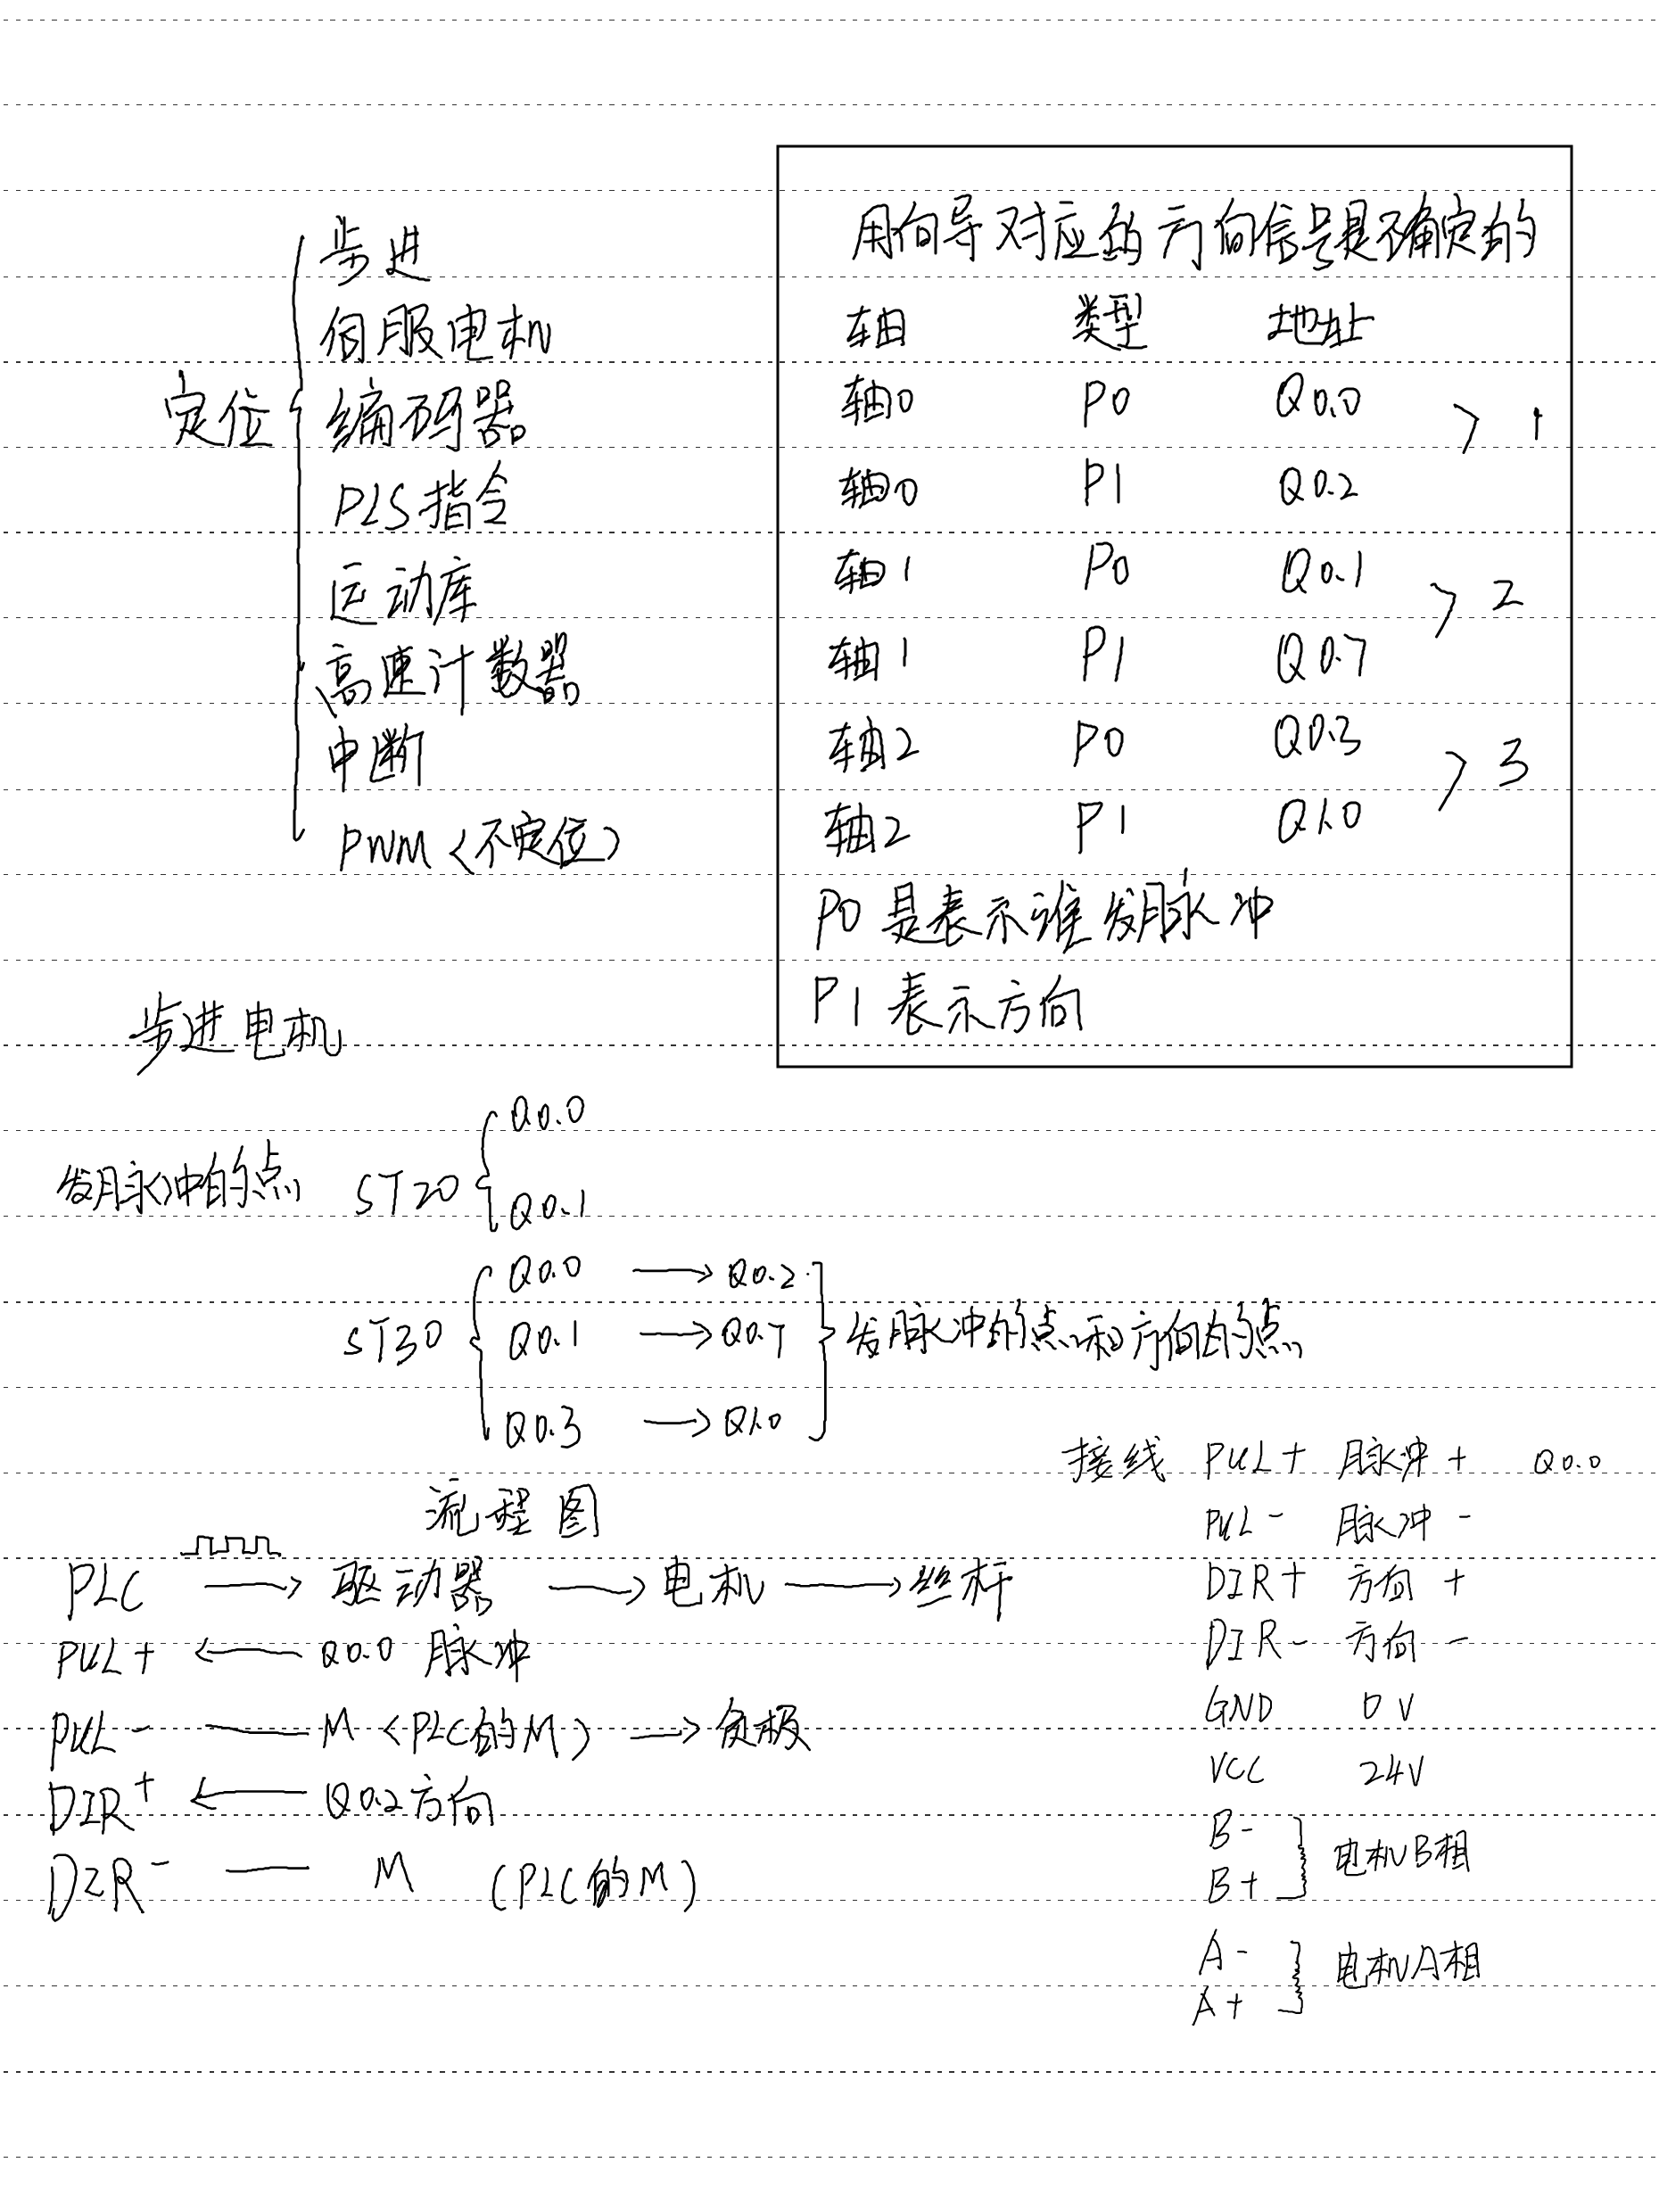 定位
步进
伺服电机
编码器
PLS指令
运动库
高速计数器
中断
PWM<不定位>
用向导对应的方向信号是不确定的
轴 类型 地址
轴0 P0 Q0.0
> 1
轴0 P1 Q0.2
轴1 P0 Q0.1
> 2
轴1 P1 Q0.7
轴2 P0 Q0.3
> 3
轴2 P1 Q1.0
P0是表示谁发脉冲
P1表示方向
步进电机
发脉冲的点 ST20
Q0.0
Q0.1
ST30
Q0.0 → Q0.2
Q0.1 → Q0.7
Q0.3 → Q1.0
发脉冲的点和方向的点
流程图
PLC → 驱动器 → 电机 → 丝杆
PUL+ ← Q0.0 脉冲
PUL- — M <PLC的M> → 负极
DIR+ ← Q0.2方向
DIR- — M (PLC的M)
接线 PUL+ 脉冲+ Q0.0
PUL- 脉冲-
DIR+ 方向+
DIR- 方向-
GND 0V
VCC 24V
B-
B+
电机B相
A-
A+
电机A相